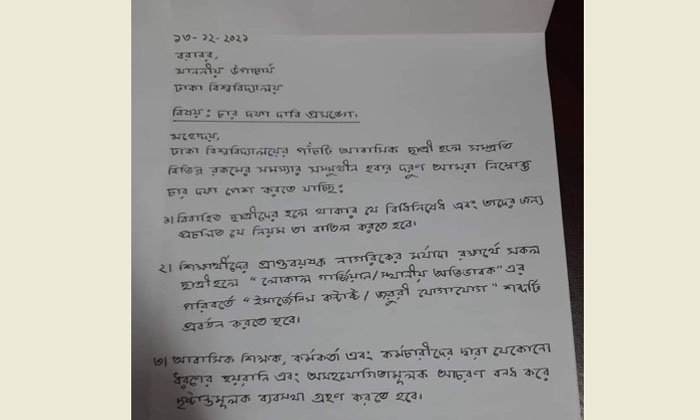 ১৩-১২-২০২১
বরাবর,
মাননীয় উপাচার্য
ঢাকা বিশ্ববিদ্যালয়
বিষয় : চার দফা দাবি প্রসঙ্গে।
মহোদয়,
ঢাকা বিশ্ববিদ্যালয়ের পাঁচটি আবাসিক ছাত্রী হলে সম্প্রতি
বিভিন্ন রকমের সমস্যার সম্মুখীন হবার দরুণ আমরা নিম্নোক্ত
চার দফা পেশ করতে যাচ্ছি :
১। বিবাহিত ছাত্রীদের হলে থাকার যে বিধিনিষেধ এবং তাদের জন্য
প্রচলিত যে নিয়ম তা বাতিল করতে হবে।
২। শিক্ষার্থীদের প্রাপ্তবয়ষ্ক নাগরিকের মর্যাদা রক্ষার্থে সকল
ছাত্রীহলে "লোকাল গার্জিয়ান/স্থানীয় অভিভাবক" এর
পরিবর্তে "ইমার্জেন্সি কন্টাক্ট / জরুরী যোগাযোগ" শব্দটি
প্রবর্তন করতে হবে।
৩। আবাসিক শিক্ষক, কর্মকর্তা এবং কর্মচারীদের দ্বারা যেকোনো
ধরণের হয়রানি এবং অসহযোগিতামূলক আচরণ বন্ধ করে
দৃষ্টান্তমূলক ব্যবস্থা গ্রহণ করতে হবে।